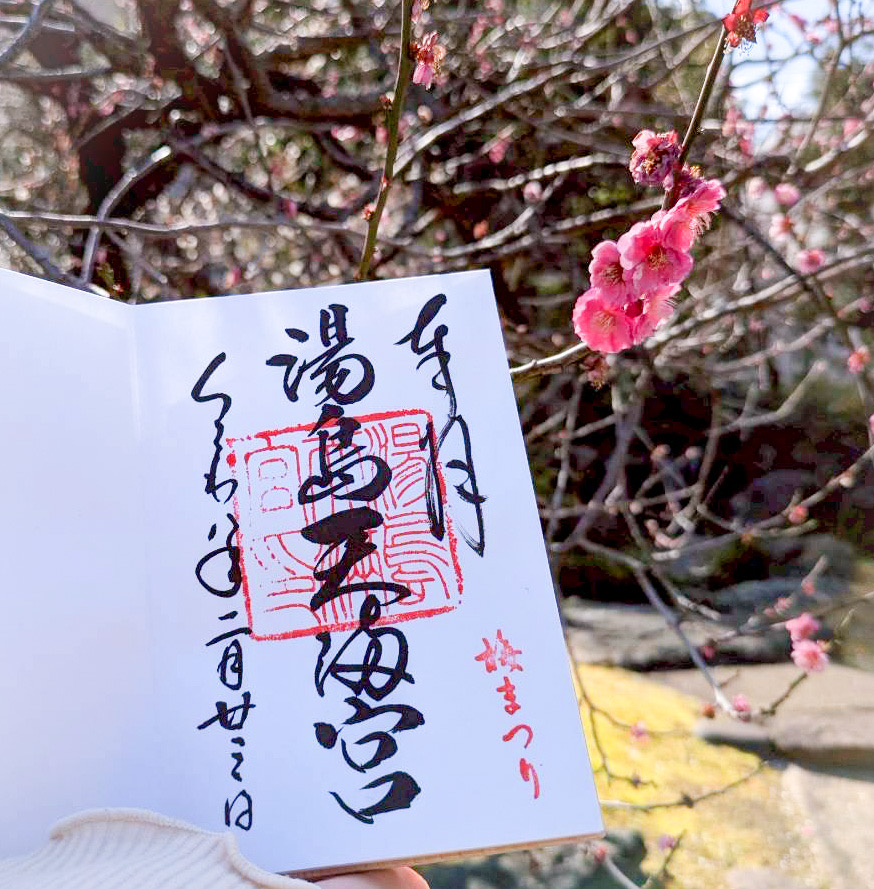 奉拝
梅まつり
湯島天満宮
令和八年二月廿三日